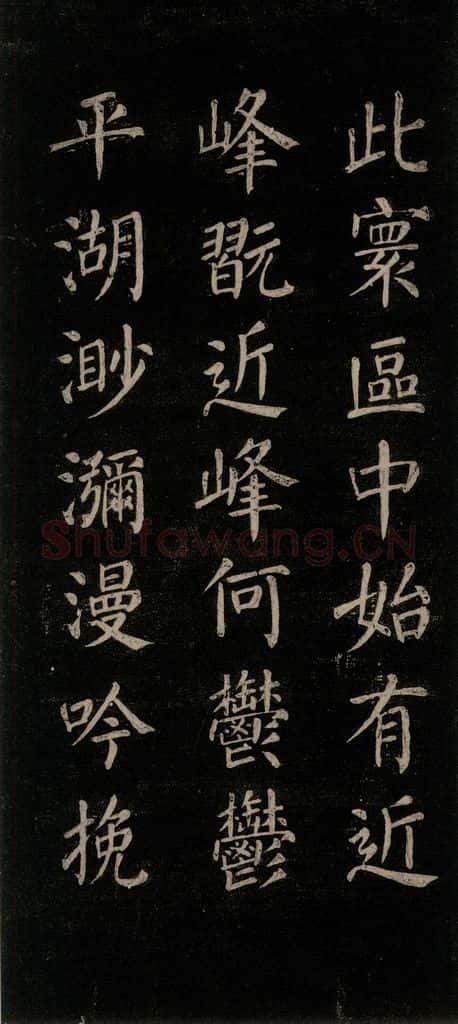 此寰區中始有近
峰翫近峰何鬱鬱
平湖渺瀰漫吟挽
Shufawang.CN